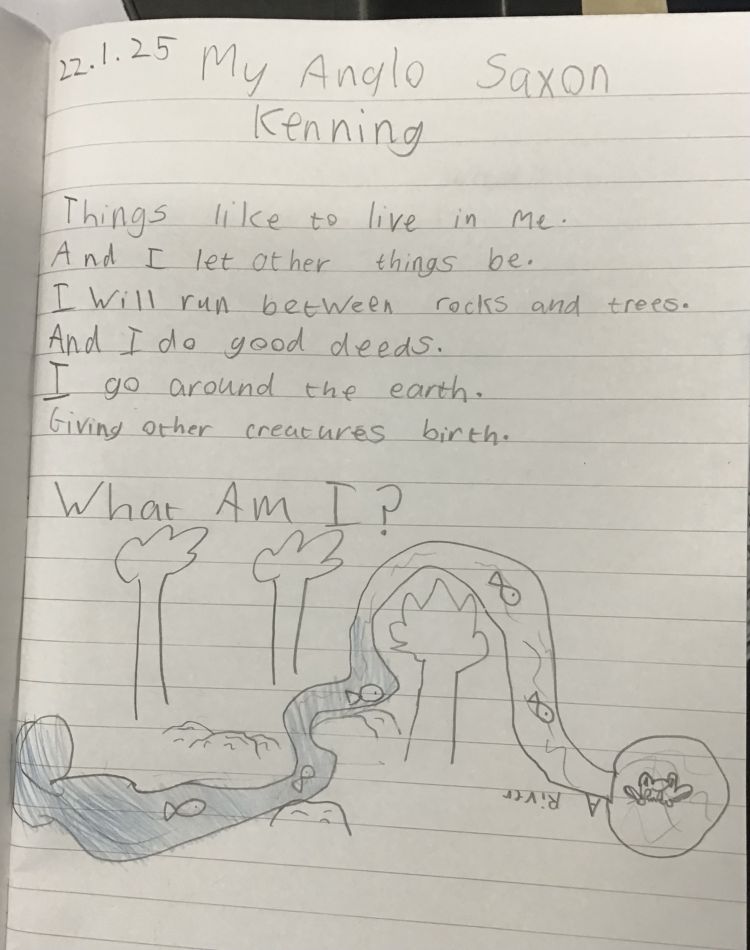 22.1.25 My Anglo Saxon
Kenning
Things like to live in me.
And I let other things be.
I will run between rocks and trees.
And I do good deeds.
I go around the earth.
Giving other creatures birth.
What Am I?
A River